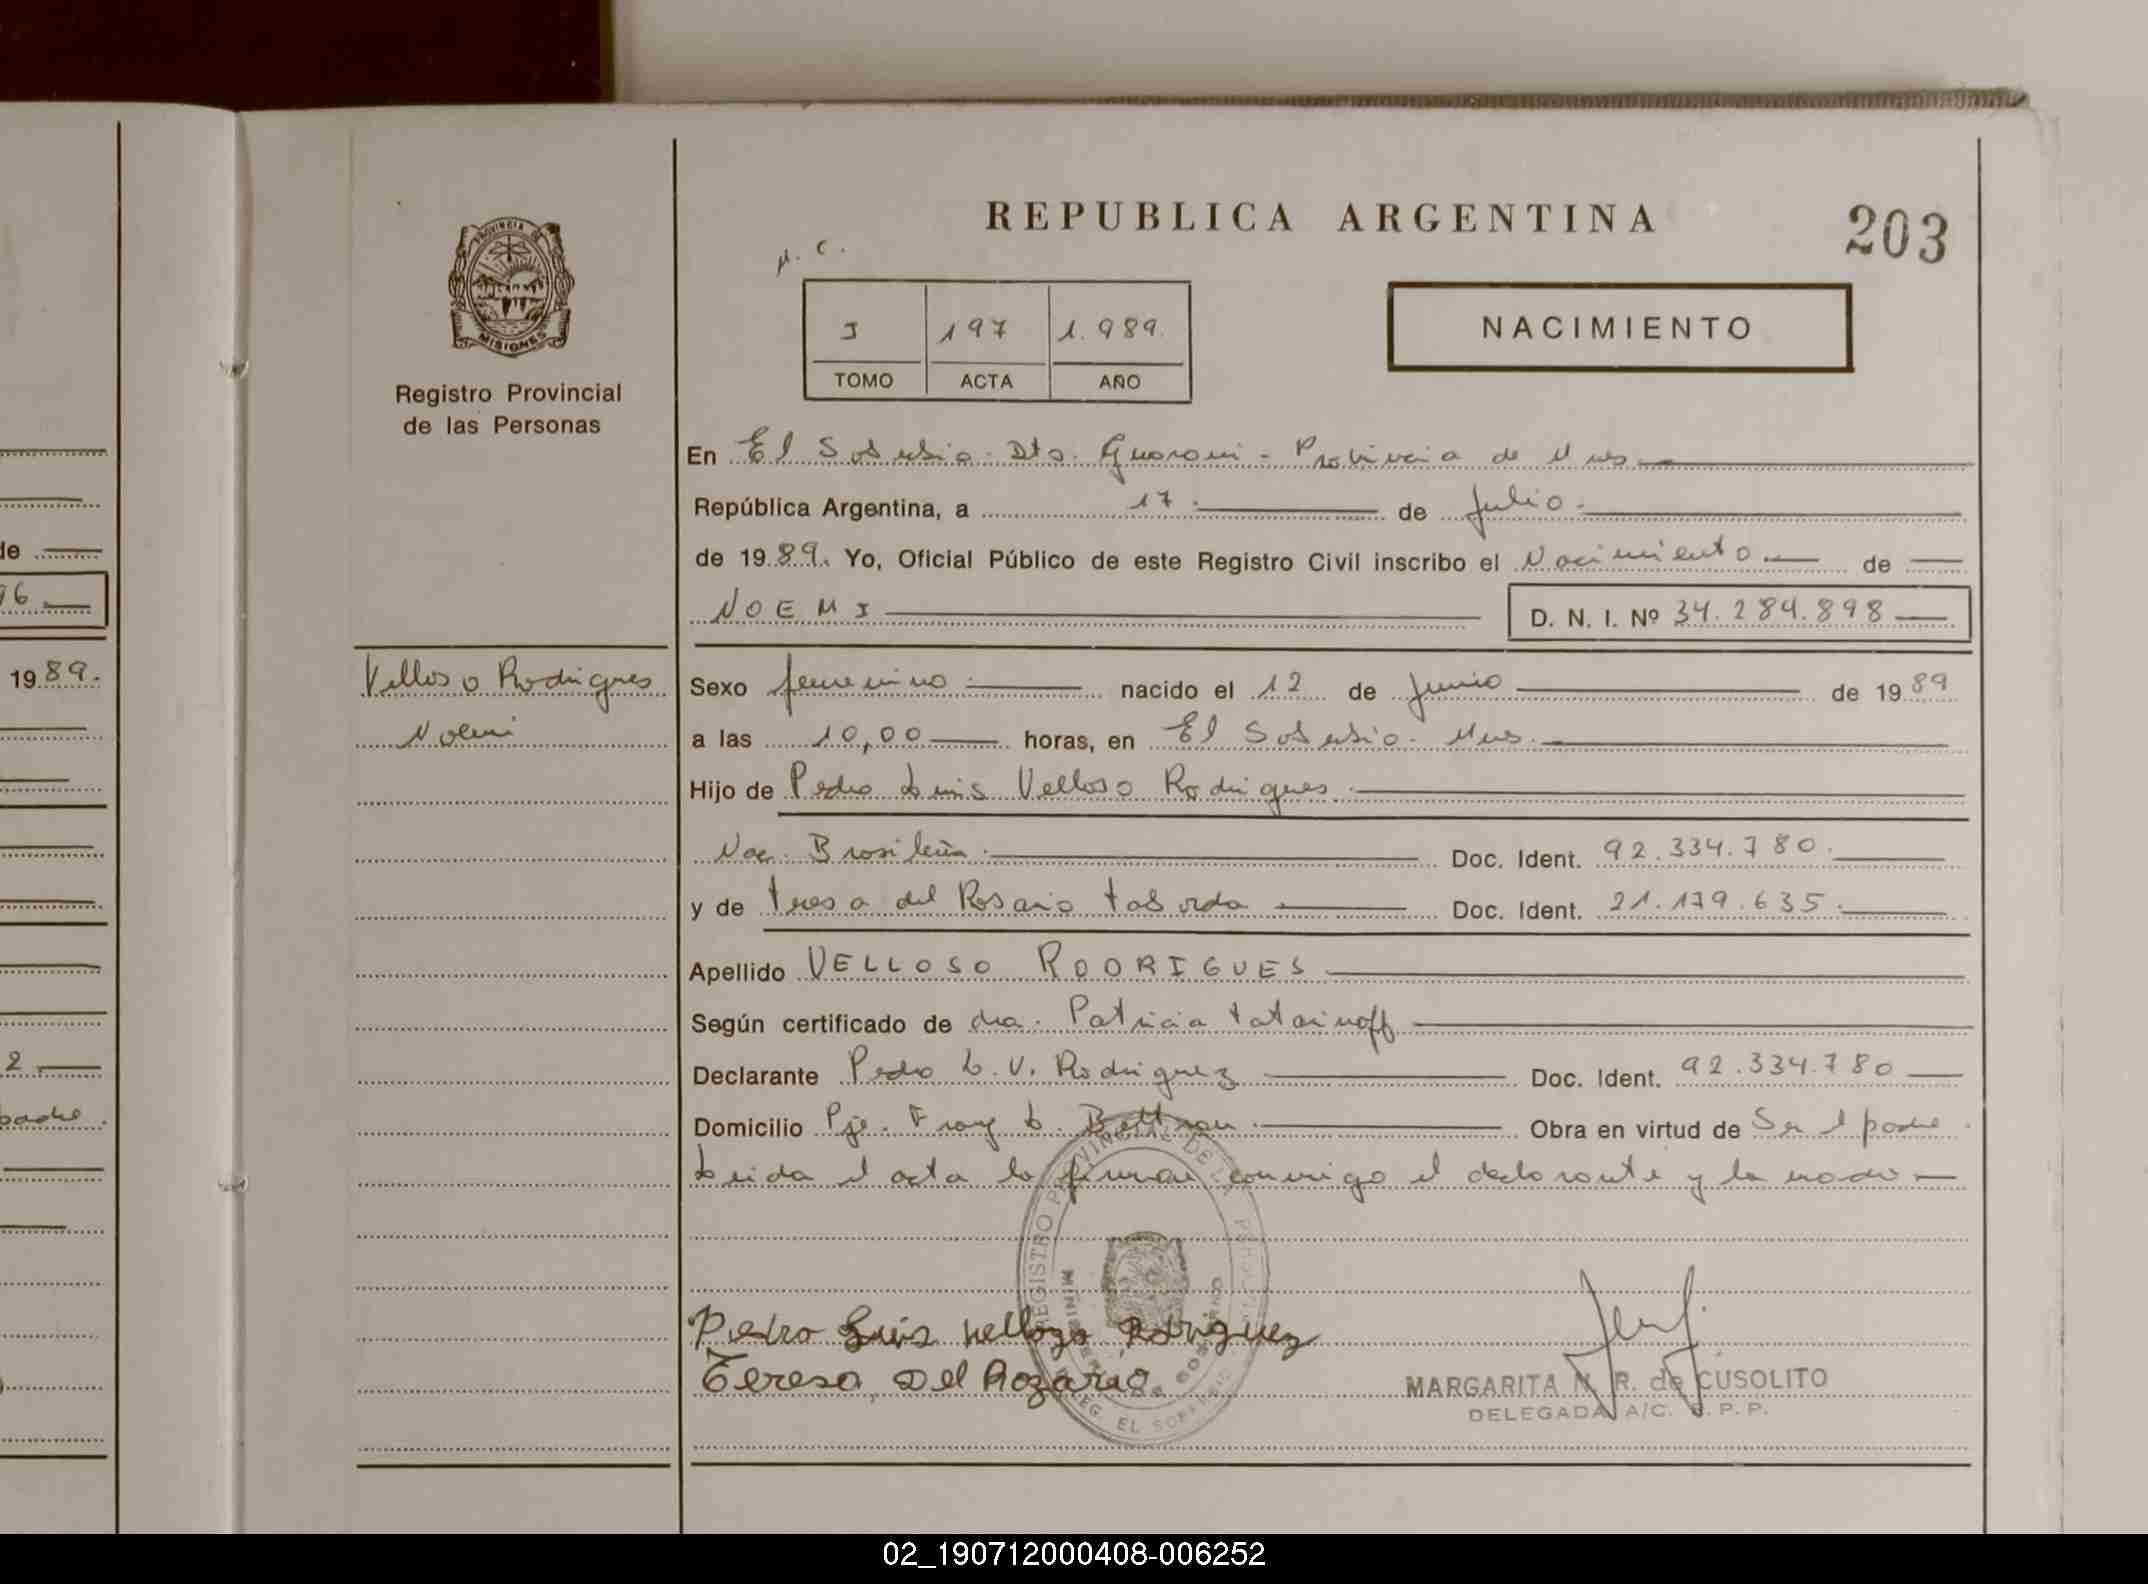 REPUBLICA ARGENTINA
203
PROVINCIA DE
MISIONES
Registro Provincial
de las Personas
I 197 1.989
TOMO ACTA AÑO
NACIMIENTO
En El Soberbio. Dto. Guarani - Provincia de Mnes
República Argentina, a 17 de Julio
de 1989. Yo, Oficial Público de este Registro Civil inscribo el Nacimiento de
NOEMI D. N. I. Nº 34.284.898
Velloso Rodrigues
Noemi
Sexo femenino nacido el 12 de Junio de 1989
a las 10,00 horas, en El Soberbio. Mnes.
Hijo de Pedro Luis Velloso Rodrigues
Nac. Brasileña Doc. Ident. 92.334.780
y de Teresa del Rosario Taborda Doc. Ident. 21.179.635
Apellido VELLOSO RODRIGUES
Según certificado de dra. Patricia Tatarinoff
Declarante Pedro L. V. Rodriguez Doc. Ident. 92.334.780
Domicilio Pje. Fray L. Beltran Obra en virtud de Ser el padre
Leida el acta la firman conmigo el declarante y la madre
Pedro Luis Vellozo Rodriguez
Teresa Del Rozario
MARGARITA N. R. de CUSOLITO
DELEGADA A/C. R. P. P.
de
96
1989.
2
padre.
02_190712000408-006252